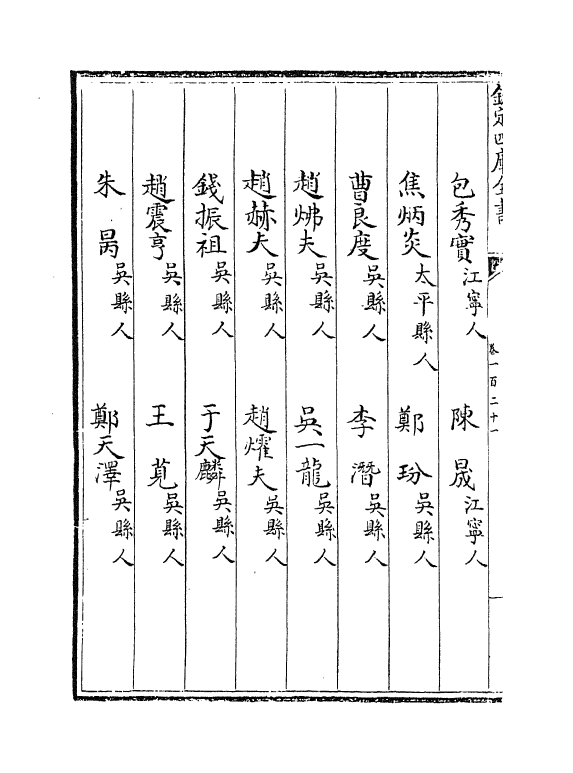 欽定四庫全書
卷一百二十一
包秀實江寧人 陳晟江寧人
焦炳炎太平縣人 鄭玢吳縣人
曹良度吳縣人 李潛吳縣人
趙炥夫吳縣人 吳一龍吳縣人
趙赫夫吳縣人 趙燿夫吳縣人
錢振祖吳縣人 于天麟吳縣人
趙震亨吳縣人 王 吳縣人
朱昺吳縣人 鄭天澤吳縣人